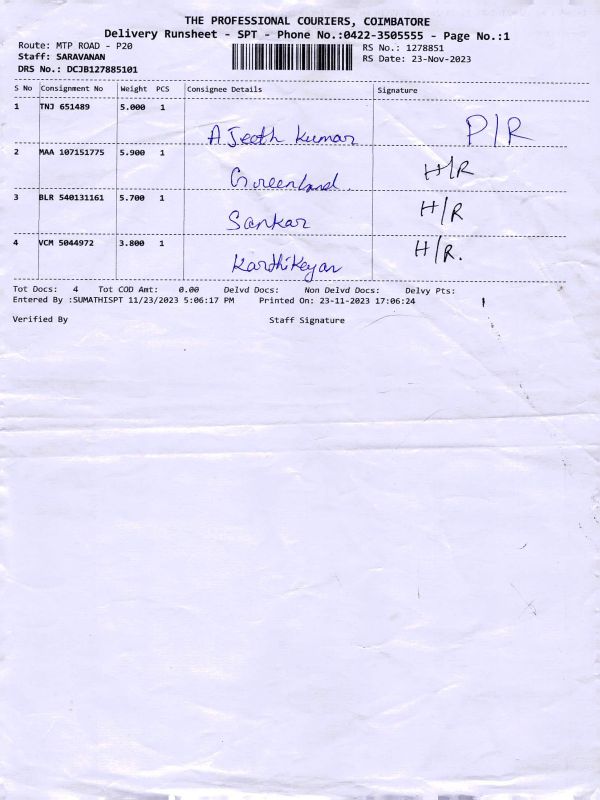 THE PROFESSIONAL COURIERS, COIMBATORE
Delivery Runsheet - SPT - Phone No.:0422-3505555 - Page No.:1
Route: MTP ROAD - P20 RS No.: 1278851
Staff: SARAVANAN RS Date: 23-Nov-2023
DRS No.: DCJB127885101
S No Consignment No Weight PCS Consignee Details Signature
1 TNJ 651489 5.000 1
AJeeth Kumar P/R
2 MAA 107151775 5.900 1
Greenland. H/R
3 BLR 540131161 5.700 1
Sankar H/R
4 VCM 5044972 3.800 1
Karthikeyan H/R.
Tot Docs: 4 Tot COD Amt: 0.00 Delvd Docs: Non Delvd Docs: Delvy Pts:
Entered By :SUMATHISPT 11/23/2023 5:06:17 PM Printed On: 23-11-2023 17:06:24
Verified By Staff Signature